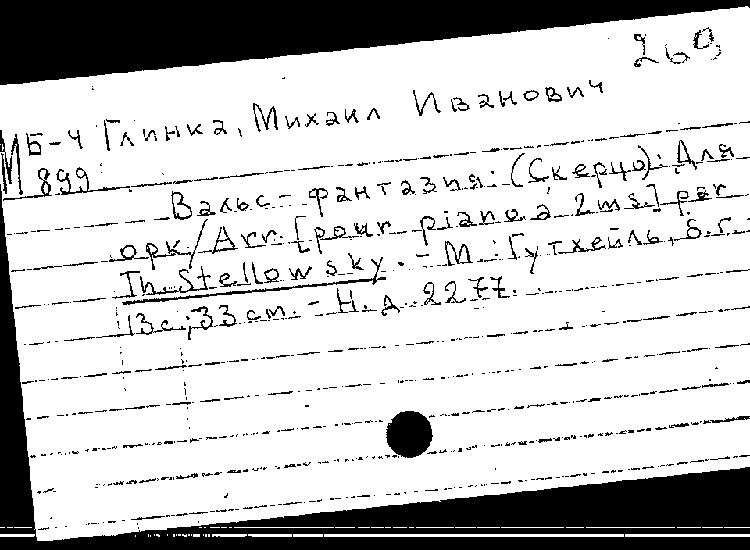 260,
МБ-4 Глинка, Михаил Иванович
899
Вальс-фантазия: (Скерцо): Для
орк/Arr. [pour piano à 2 ms.] par
Th. Stellowsky. - М.: Гутхейль, б.г.
13 с.; 33 см. - Н. д. 2277.